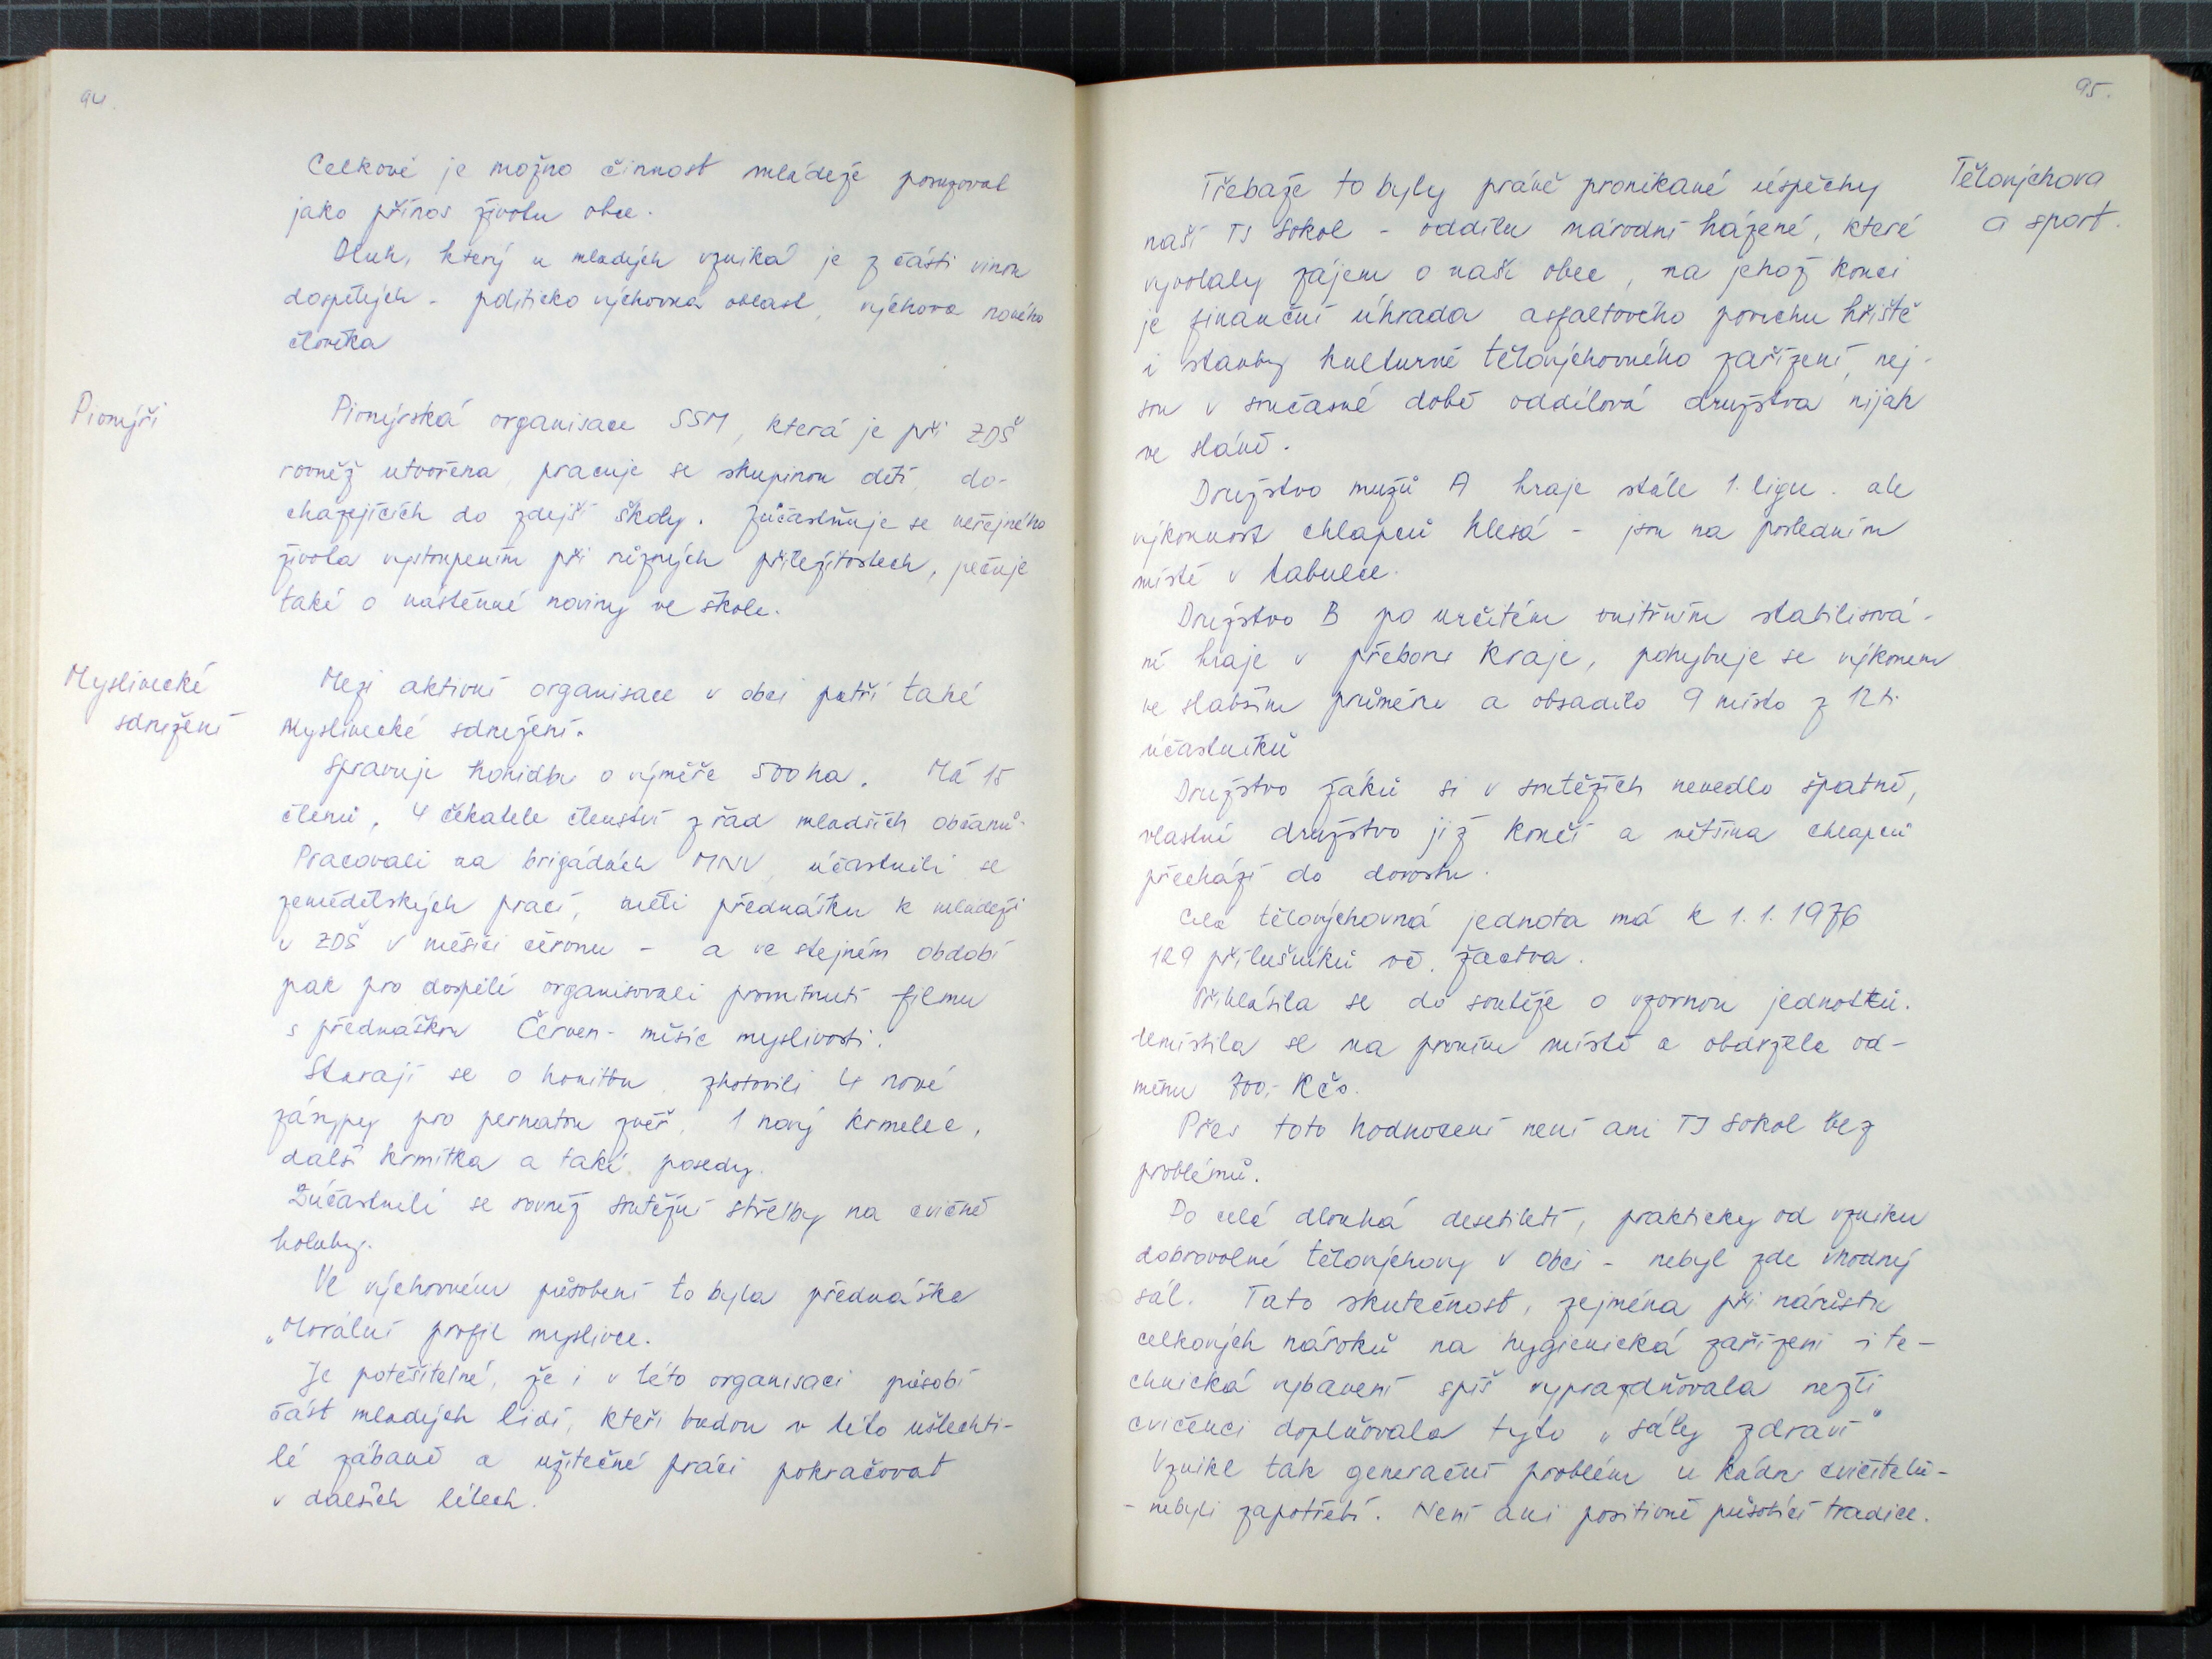 94.
Celkově je možno činnost mládeže posuzovat
jako přínos životu obce.
Dluh, který u mladých vzniká je z části vinou
dospělých - politicko výchovná oblast, výchova nového
člověka
Pionýři
Pionýrská organisace SSM, která je při ZDŠ
rovněž utvořena, pracuje se skupinou dětí, do-
cházejících do zdejší školy. Zúčastňuje se veřejného
života vystoupením při různých příležitostech, pečuje
také o nástěnné noviny ve škole.
Myslivecké
sdružení
Mezi aktivní organisace v obci patří také
Myslivecké sdružení.
Spravuje honitbu o výměře 500 ha. Má 15
členů, 4 čekatele členství z řad mladších občanů.
Pracovali na brigádách MNV, účastnili se
zemědělských prací, měli přednášku k mládeži
v ZDŠ v měsíci červnu - a ve stejném období
pak pro dospělé organisovali promítnutí filmu
s přednáškou Červen - měsíc myslivosti.
Starají se o honitbu, zhotovili 4 nové
zásypy pro pernatou zvěř, 1 nový krmelec,
další krmítka a také posedy.
Zúčastnili se rovněž soutěžní střelby na cvičné
holuby.
Ve výchovném působení to byla přednáška
„Morální profil myslivce.
Je potěšitelné, že i v této organisaci působí
část mladých lidí, kteří budou v této ušlechti-
lé zábavě a užitečné práci pokračovat
v dalších létech.
95.
Tělovýchova
a sport.
Třebaže to byly právě pronikavé úspěchy
naší TJ Sokol - oddílu národní házené, které
vyvolaly zájem o naši obec, na jehož konci
je finanční úhrada asfaltového povrchu hřiště
i stavby kulturně tělovýchovného zařízení, nej-
sou v současné době oddílová družstva nijak
ve slávě.
Družstvo mužů A hraje stále 1. ligu. ale
výkonnost chlapců klesá - jsou na posledním
místě v tabulce.
Družstvo B po určitém vnitřním stabilisová-
ní hraje v přeboru kraje, pohybuje se výkonem
ve slabším průměru a obsadilo 9 místo z 12ti
účastníků
Družstvo žáků si v soutěžích nevedlo špatně,
vlastně družstvo již končí a většina chlapců
přechází do dorostu.
Celá tělovýchovná jednota má k 1. 1. 1976
129 příslušníků vč. žactva.
Přihlásila se do soutěže o vzornou jednotku.
Umístila se na prvním místě a obdržela od-
měnu 700,- Kčs.
Přes toto hodnocení není ani TJ Sokol bez
problémů.
Po celá dlouhá desetiletí, prakticky od vzniku
dobrovolné tělovýchovy v obci - nebyl zde vhodný
sál. Tato skutečnost, zejména při nárůstu
celkových nároků na hygienická zařízení i te-
chnická vybavení spíš vyprazdňovala nežli
cvičenci doplňovala tyto „sály zdraví“
Vznikl tak generační problém u kádru cvičitelů-
- nebyli zapotřebí. Není ani positivně působící tradice.